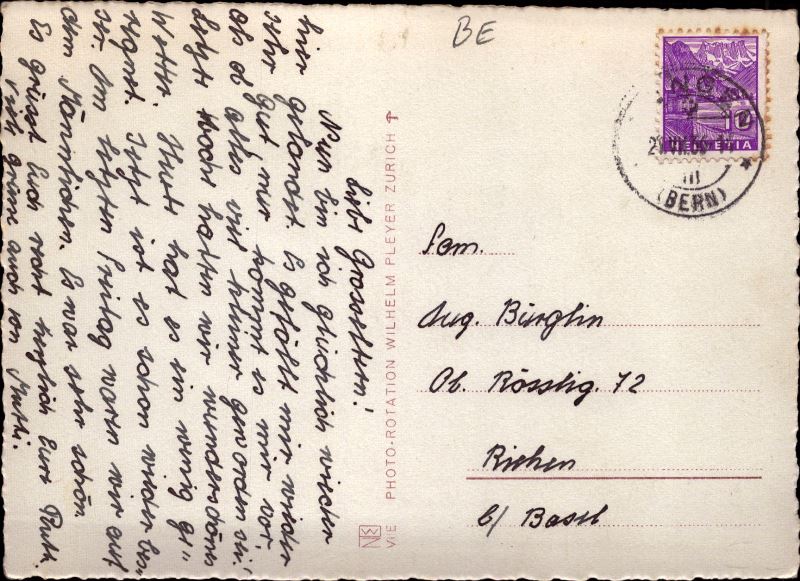 Liebe Grosseltern!
Nun bin ich glücklich wieder
hier gelandet. Es gefällt mir wieder
sehr gut nur kommt es mir vor,
als ob alles viel kleiner geworden sei.
Letzte Woche hatten wir wunderschönes
Wetter. Heute hat es ein wenig ge=
regnet. Jetzt ist es schon wieder bes=
ser. Am letzten Freitag waren wir auf
dem Männlichen. Es war sehr schön.
Es grüsst Euch recht herzlich Eure Ruth.
Viele Grüsse auch von Mutti.
VIE PHOTO-ROTATION WILHELM PLEYER ZÜRICH
BE
10
HELVETIA
(BERN)
Fam.
Aug. Bürglin
Ob. Rösslig. 72
Riehen
b/ Basel